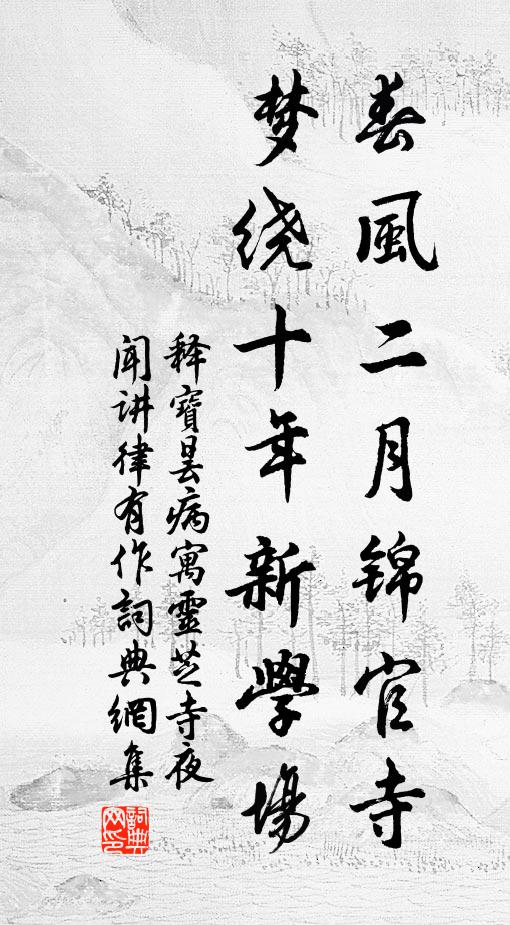 春風二月锦官寺
梦绕十年新學場
释寶昙病寓靈芝寺夜
闻讲律有作詞典網集
詞典
网印